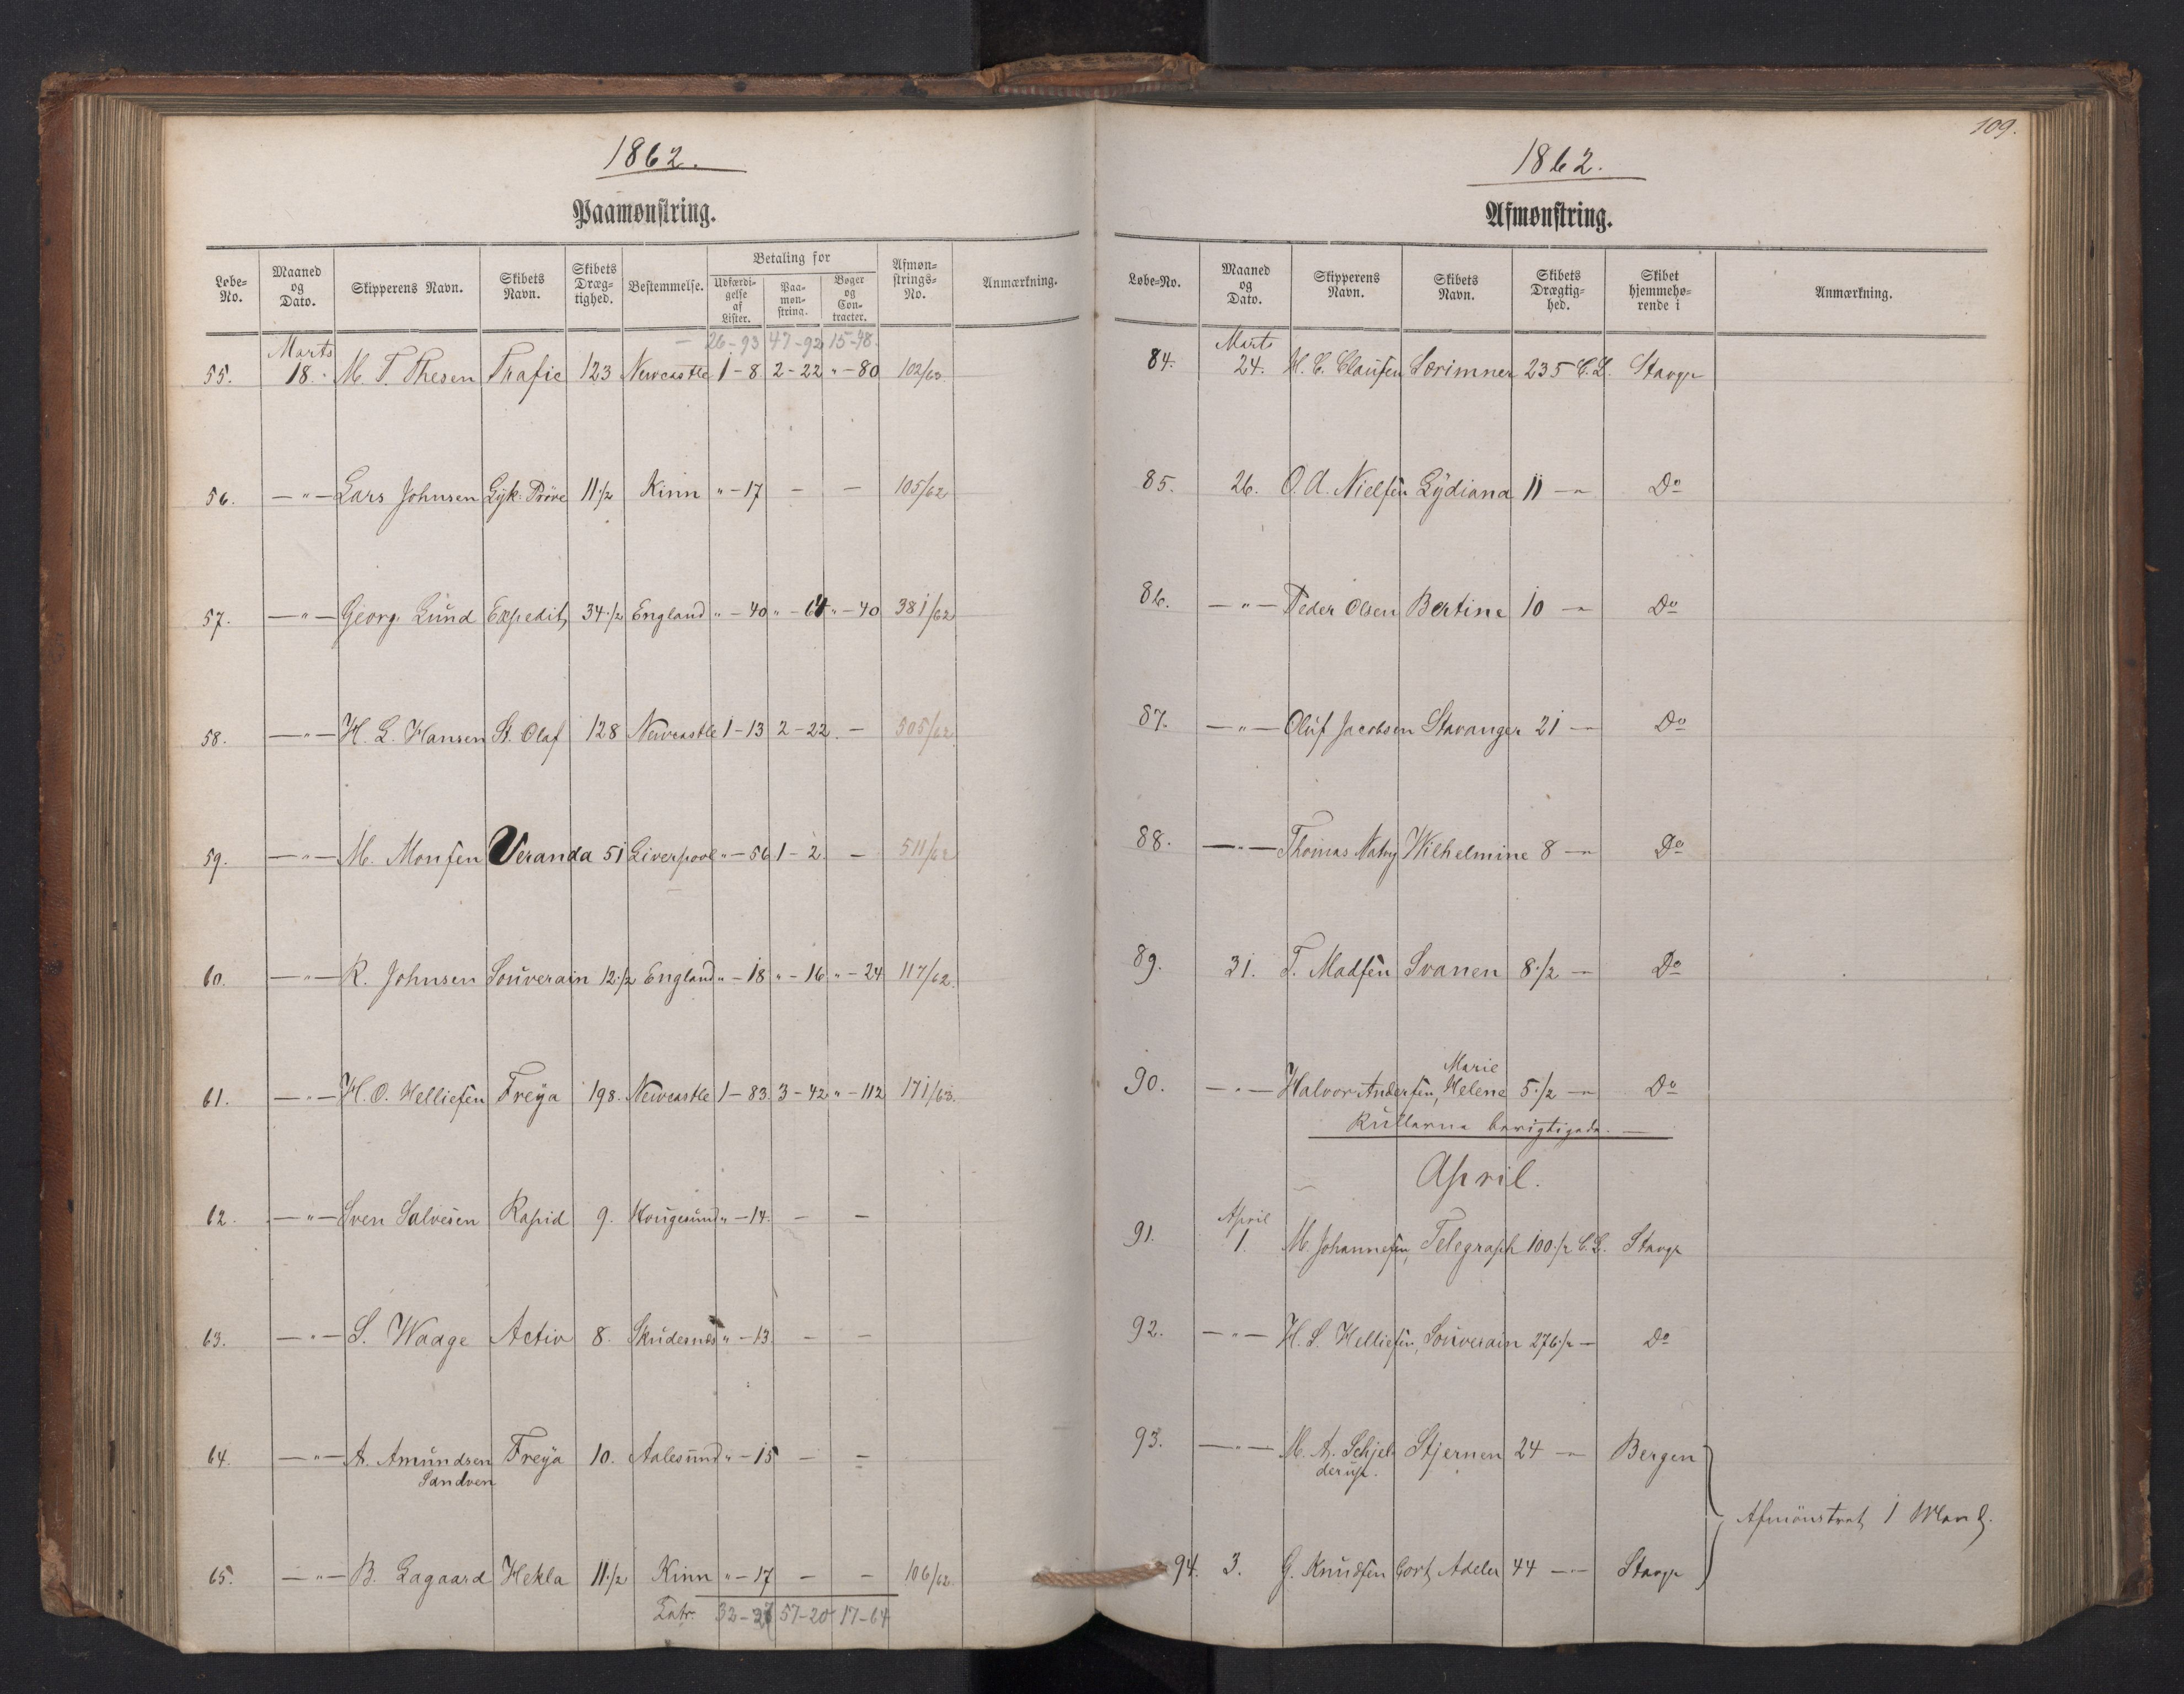 1862.
Paamønstring.
Løbe-No. Maaned og Dato. Skipperens Navn. Skibets Navn. Skibets Dræg-tighed. Bestemmelse. Betaling for Udfærdi-gelse af Lister. Paa-møn-string. Bøger og Con-tracter. Afmøn-strings-No. Anmærkning.
26-93 47-92 15-48.
Marts
55. 18. M. T. Thesen Trafic 123 Newcastle 1-8 2-22 "-80 102/63.
56. —"— Lars Johnsen Lyk: Pröve 11 1/2 Kinn "-17 — — 105/62
57. —"— Georg Lund Expedit, 34 1/2 England "-40 "-64 "-40 381/62
58. —"— H. L. Hansen St. Olaf 128 Newcastle 1-13 2-22. — 505/62
59. —"— M. Monsen Veranda 51 Liverpool "-56 1-2. — 511/62
60. —"— R. Johnsen Souverain 12 1/2 England "-18 "-16. "-24 117/62.
61. —"— H. O. Helliesen Freya 198. Newcastle 1-83. 3-42 "-112 171/63.
62. —"— Sven Salvesen Rapid 9. Hougesund "-14. — —
63. —"— S. Waage Activ 8. Skudernæs "-13. — —
64. —"— A. Amundsen Freya 10. Aalesund "-15 — —
Sandven
65. —"— B. Lagaard Hekla 11 1/2 Kinn "-17 — — 106/62.
Latr. 32-27 57-20 17-64
109.
1862.
Afmønstring.
Løbe-No. Maaned og Dato. Skipperens Navn. Skibets Navn. Skibets Drægtig-hed. Skibet hjemmehø-rende i Anmærkning.
Marts
84. 24. H. C. Clausen Sørimner 235 C.L. Stavgr
85. 26. O. A. Nielsen Lydiana 11 —"— Do
86. —"— Peder Olsen Bertine 10 —"— Do
87. —"— Oluf Jacobsen Stavanger 21 —"— Do
88. —"— Thomas Natvig Wilhelmine 8 —"— Do
89. 31. T. Madsen Svanen 8 1/2 —"— Do
Marie
90. —"— Halvor Andersen, Helene 5 1/2 —"— Do
Rullarna berigtigade. —
April.
April
91. 1. M. Johannesen, Telegraph 100 1/2 C.L. Stavgr
92. —"— H. S. Helliesen, Souverain 276 1/2 — Do
93. —"— M. A. Schjel- Stjernen 24 —"— Bergen
derup.
Afmönstret 1 Mand.
94. 3. G. Knudsen Cort Adeler 44 —"— Stavgr